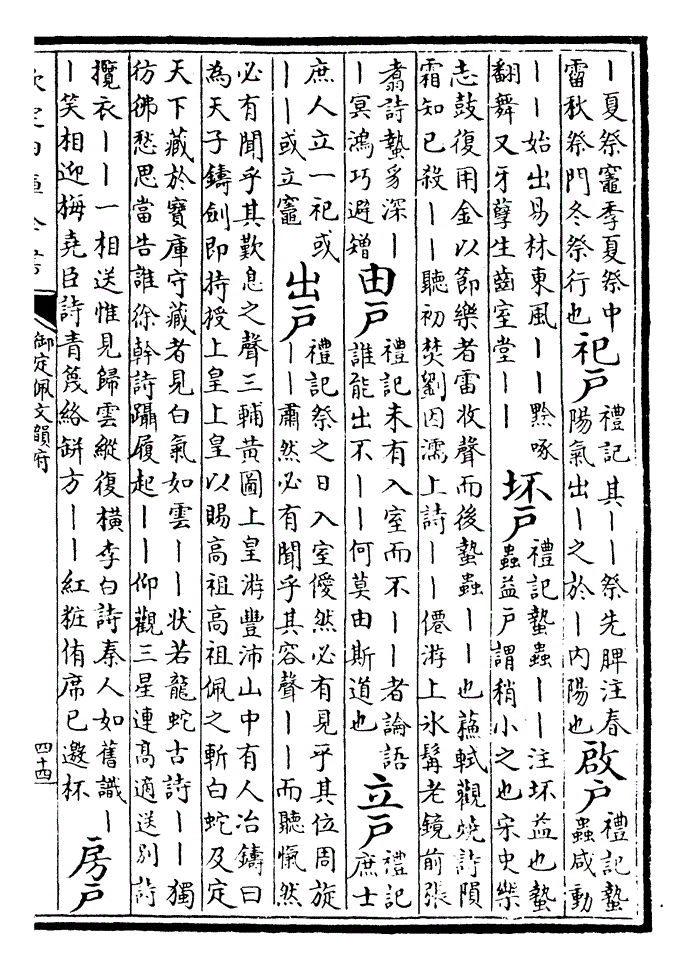 丨夏祭竈季夏祭中
霤秋祭門冬祭行也
祀戶
禮記其丨丨祭先脾注春
陽氣出丨之於丨内陽也
啟戶
禮記蟄
蟲咸動
丨丨始出易林東風丨丨黔啄
翻舞又牙孽生齒室堂丨丨
坏戶
禮記蟄蟲丨丨注坏益也蟄
蟲益戶謂稍小之也宋史樂
志鼓復用金以節樂者雷收聲而後蟄蟲丨丨也蘓軾觀燒詩隕
霜知已殺丨丨聽初焚劉因濡上詩丨丨僊游上冰髯老鏡前張
翥詩蟄豸深丨
丨冥鴻巧避矰
由戶
禮記未有入室而不丨丨者論語
誰能出不丨丨何莫由斯道也
立戶
禮記
庶士
庶人立一祀或
丨丨或立竈
出戶
禮記祭之日入室僾然必有見乎其位周旋
丨丨肅然必有聞乎其容聲丨丨而聽愾然
必有聞乎其歎息之聲三輔黃圖上皇游豐沛山中有人冶鑄曰
為天子鑄劍即持授上皇上皇以賜高祖高祖佩之斬白蛇及定
天下藏於寶庫守藏者見白氣如雲丨丨狀若龍蛇古詩丨丨獨
彷彿愁思當告誰徐幹詩躡履起丨丨仰觀三星連高適送別詩
攬衣丨丨一相送惟見歸雲縱復橫李白詩秦人如舊識丨
丨笑相迎梅堯臣詩青篾絡缾方丨丨紅粧侑席已邀杯
房戶
欽定四庫全書
御定佩文韻府
四十四